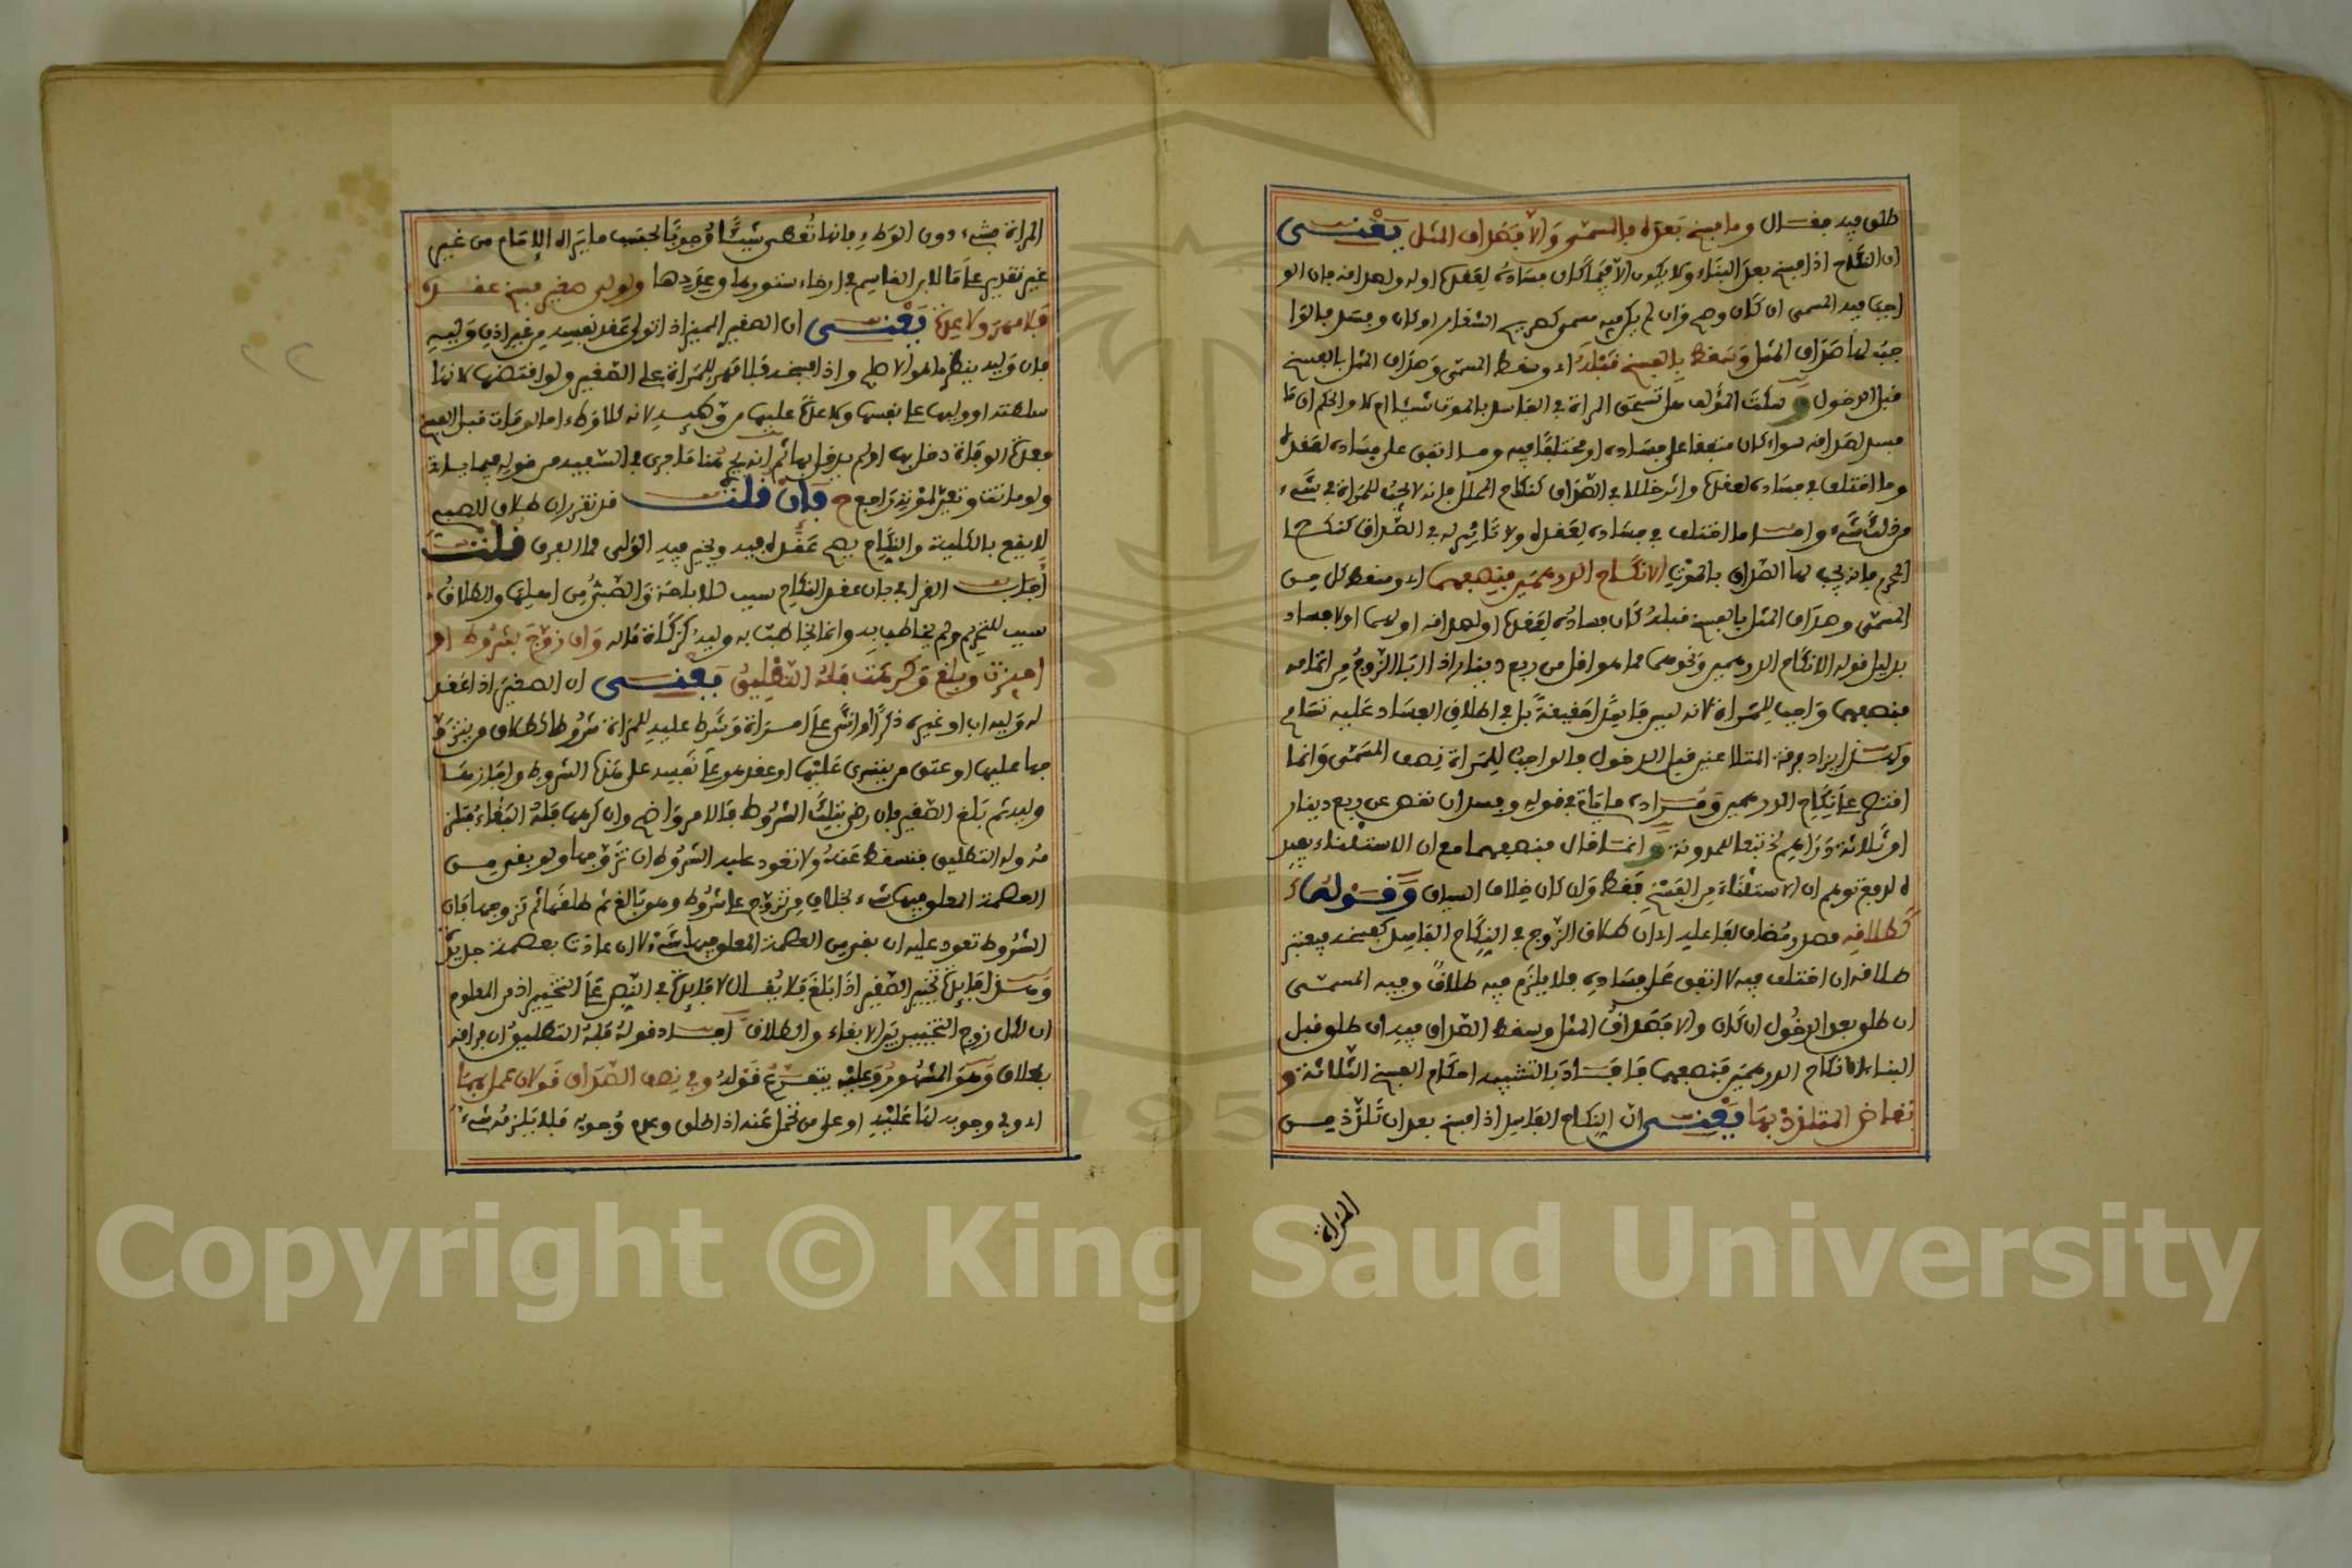 طلق فيه فقال وما فسخ بعده فالمسمى والا فصداق المثل يعني
ان النكاح اذا فسخ بعد البناء ولا يكون الا فيما كان فساده لعقده او له ولصداقه فان الو
اجب فيه المسمى ان كان وصح وان لم يكن فيه مسمى كصريح الشغار او كان وفسد فالوا
جب لها صداق المثل وسقط بالفسخ قبله اي وسقط المسمى وصداق المثل بالفسخ
قبل الدخول وسكت المؤلف هل تستحق المراة في الفاسد بالموت شيئا ام لا والحكم ان ما
فسد لصداقه سواء كان متفقا على فساده او مختلفا فيه وما اتفق على فساده لعقده
وما اختلف في فساده لعقده واثر خللا في الصداق كنكاح المحلل فانه لا يجب للمراة في شيء
من ذلك شيء واما ما اختلف في فساده لعقده ولا تاثير له في الصداق كنكاح ا
لمحرم فانه يجب لها الصداق بالموت الا نكاح الدرهمين فنصفهما اي وسقط كل من
المسمى وصداق المثل بالفسخ قبله كان فساده لعقده او لصداقه او لهما او لا فساد
بدليل قوله الا نكاح الدرهمين ونحوهما مما هو اقل من ربع دينار اذا ابا الزوج من اتمامه
فنصفهما واجب للمراة لانه ليس فاسدا حقيقة بل في اطلاق الفساد عليه تسامح
وكمسئلة ايراد فرقة المتلاعنين قبل الدخول فالواجب للمراة نصف المسمى وانما
اقتصر على نكاح الدرهمين ومراده ما ياتي في قوله وفسد ان نقص عن ربع دينار
او ثلاثة دراهم تبعا للمدونة وانما قال فنصفهما مع ان الاستثناء يفيد
ه لدفع توهم ان الاستثناء من الفسخ فقط وان كان خلاف السياق وقوله
كطلاقه مصدر مضاف لفاعله اي ان طلاق الزوج في النكاح الفاسد كفسخه فيعتبر
طلاقه ان اختلف فيه لا اتفق على فساده فلا يلزم فيه طلاق وفيه المسمى
ان طلق بعد الدخول ان كان والا فصداق المثل وسقط الصداق فيه ان طلق قبل
البناء الا نكاح الدرهمين فنصفهما فافاد بالتشبيه احكام الفسخ الثلاثة و
تعاض المتلذذ بها يعني ان النكاح الفاسد اذا فسخ بعد ان تلذذ من
المراة
المراة بشيء دون الوطء فانها تعطى شيئا وجوبا بحسب ما يراه الامام من غير
غير تقدير على ما لابن القاسم في ارخاء ستورها وعددها ولولي صغير فسخ عقده
فلا مهر ولا عدة يعني ان الصغير المميز اذا تولى عقد نفسه من غير اذن وليه
فان وليه ينظر ما هو الاصلح واذا فسخه فلا مهر للمراة على الصغير ولو افتضها لانها
سلطته او وليها على نفسها ولا عدة عليها من وطئه لانه كلا وطء اما لو مات قبل الفسخ
فعدة الوفاة دخل بها او لم يدخل بها ثم انه يجري هنا ما جرى في السفيه من قوله فيما ياتي
ولو ماتت وتعين لموته راجع ح فان قلت قد تقرر ان طلاق الصبي
لا يقع بالكلية والنكاح يصح عقده فيه ويخير فيه الولي فما الفرق قلت
اجاب القرافي بان عقد النكاح سبب للاباحة والصبي من اهلها والطلاق
سبب للتحريم ولم يخاطب به وانما يخاطب به وليه كزكاة ماله وان زوج بشروط او
اجيزت وبلغ وكره فله التطليق يعني ان الصغير اذا عقد
له وليه اب او غيره ذكرا او انثى على امراة وشرط عليه للمراة شروطا كطلاق من يتزو
جها عليها او عتق من يتسرى عليها او عقد هو على نفسه على هذه الشروط واجازها
وليه ثم بلغ الصغير فان رضي بتلك الشروط فالامر واضح وان كرهها فله البقاء فتلز
مه وله التطليق فتسقط عنه ولا تعود عليه الشروط ان تزوجها ولو بقي من
العصمة المعلق فيها شيء بخلاف من تزوج على شروط وهو بالغ ثم طلقها ثم تزوجها فان
الشروط تعود عليه ان بقي من العصمة المعلق فيها شيء لا ان عادت بعصمة جديدة
ومسئلة فايدة تخيير الصغير اذا بلغ فلا يقال لا فايدة في النص على التخيير اذ من المعلوم
ان لكل زوج التخيير بين الابقاء والطلاق افاد قوله فله التطليق ان فراقه
بطلاق وهو المشهور وعليه يتفرع قوله وفي نصف الصداق قولان عمل بهما
اي وفي وجوبه لها عليه او على من تحمل عنه اذا طلق وعدم وجوبه فلا يلزمه شيء